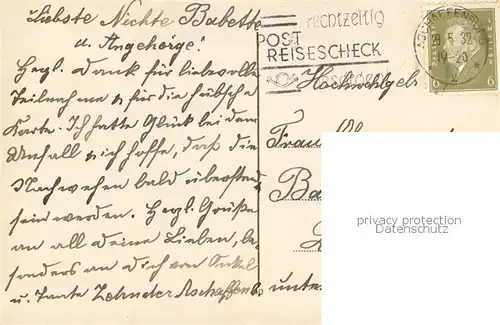 Liebste Nichte Babette
u. Angehörige!
Herzl. Dank für liebevolle
Teilnahme u. für die hübsche
Karte. Ich hatte Glück bei dem
Unfall u. ich hoffe, daß die
Nachwehen bald überstanden
sein werden. Herzl. Grüße
an all deine Lieben, be-
sonders an dich von Onkel
u. Tante Zehnder Aschaffenb.
rechtzeitig
POST
REISESCHECK
ASCHAFFENBURG
5.32
19-20
6 6
Hochwohlgeb
Frau
Ba
unter
privacy protection
Datenschutz